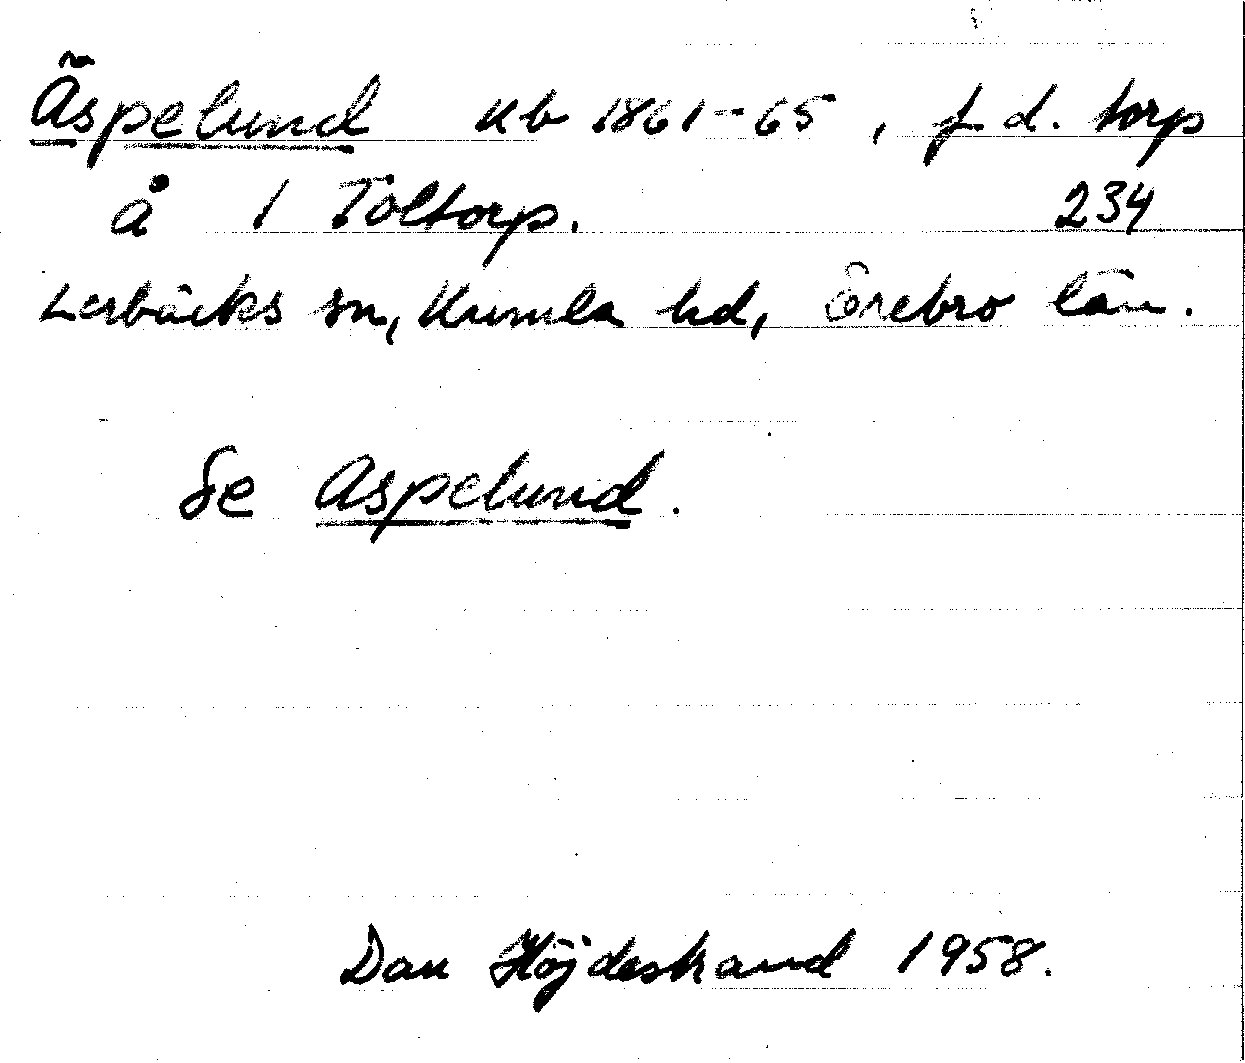 Äspelund kb 1861-65, f.d. torp
å 1 Toltorp. 234
Lerbäcks sn, Kumla hd, Örebro län.
Se Aspelund.
Dan Höjdestrand 1958.